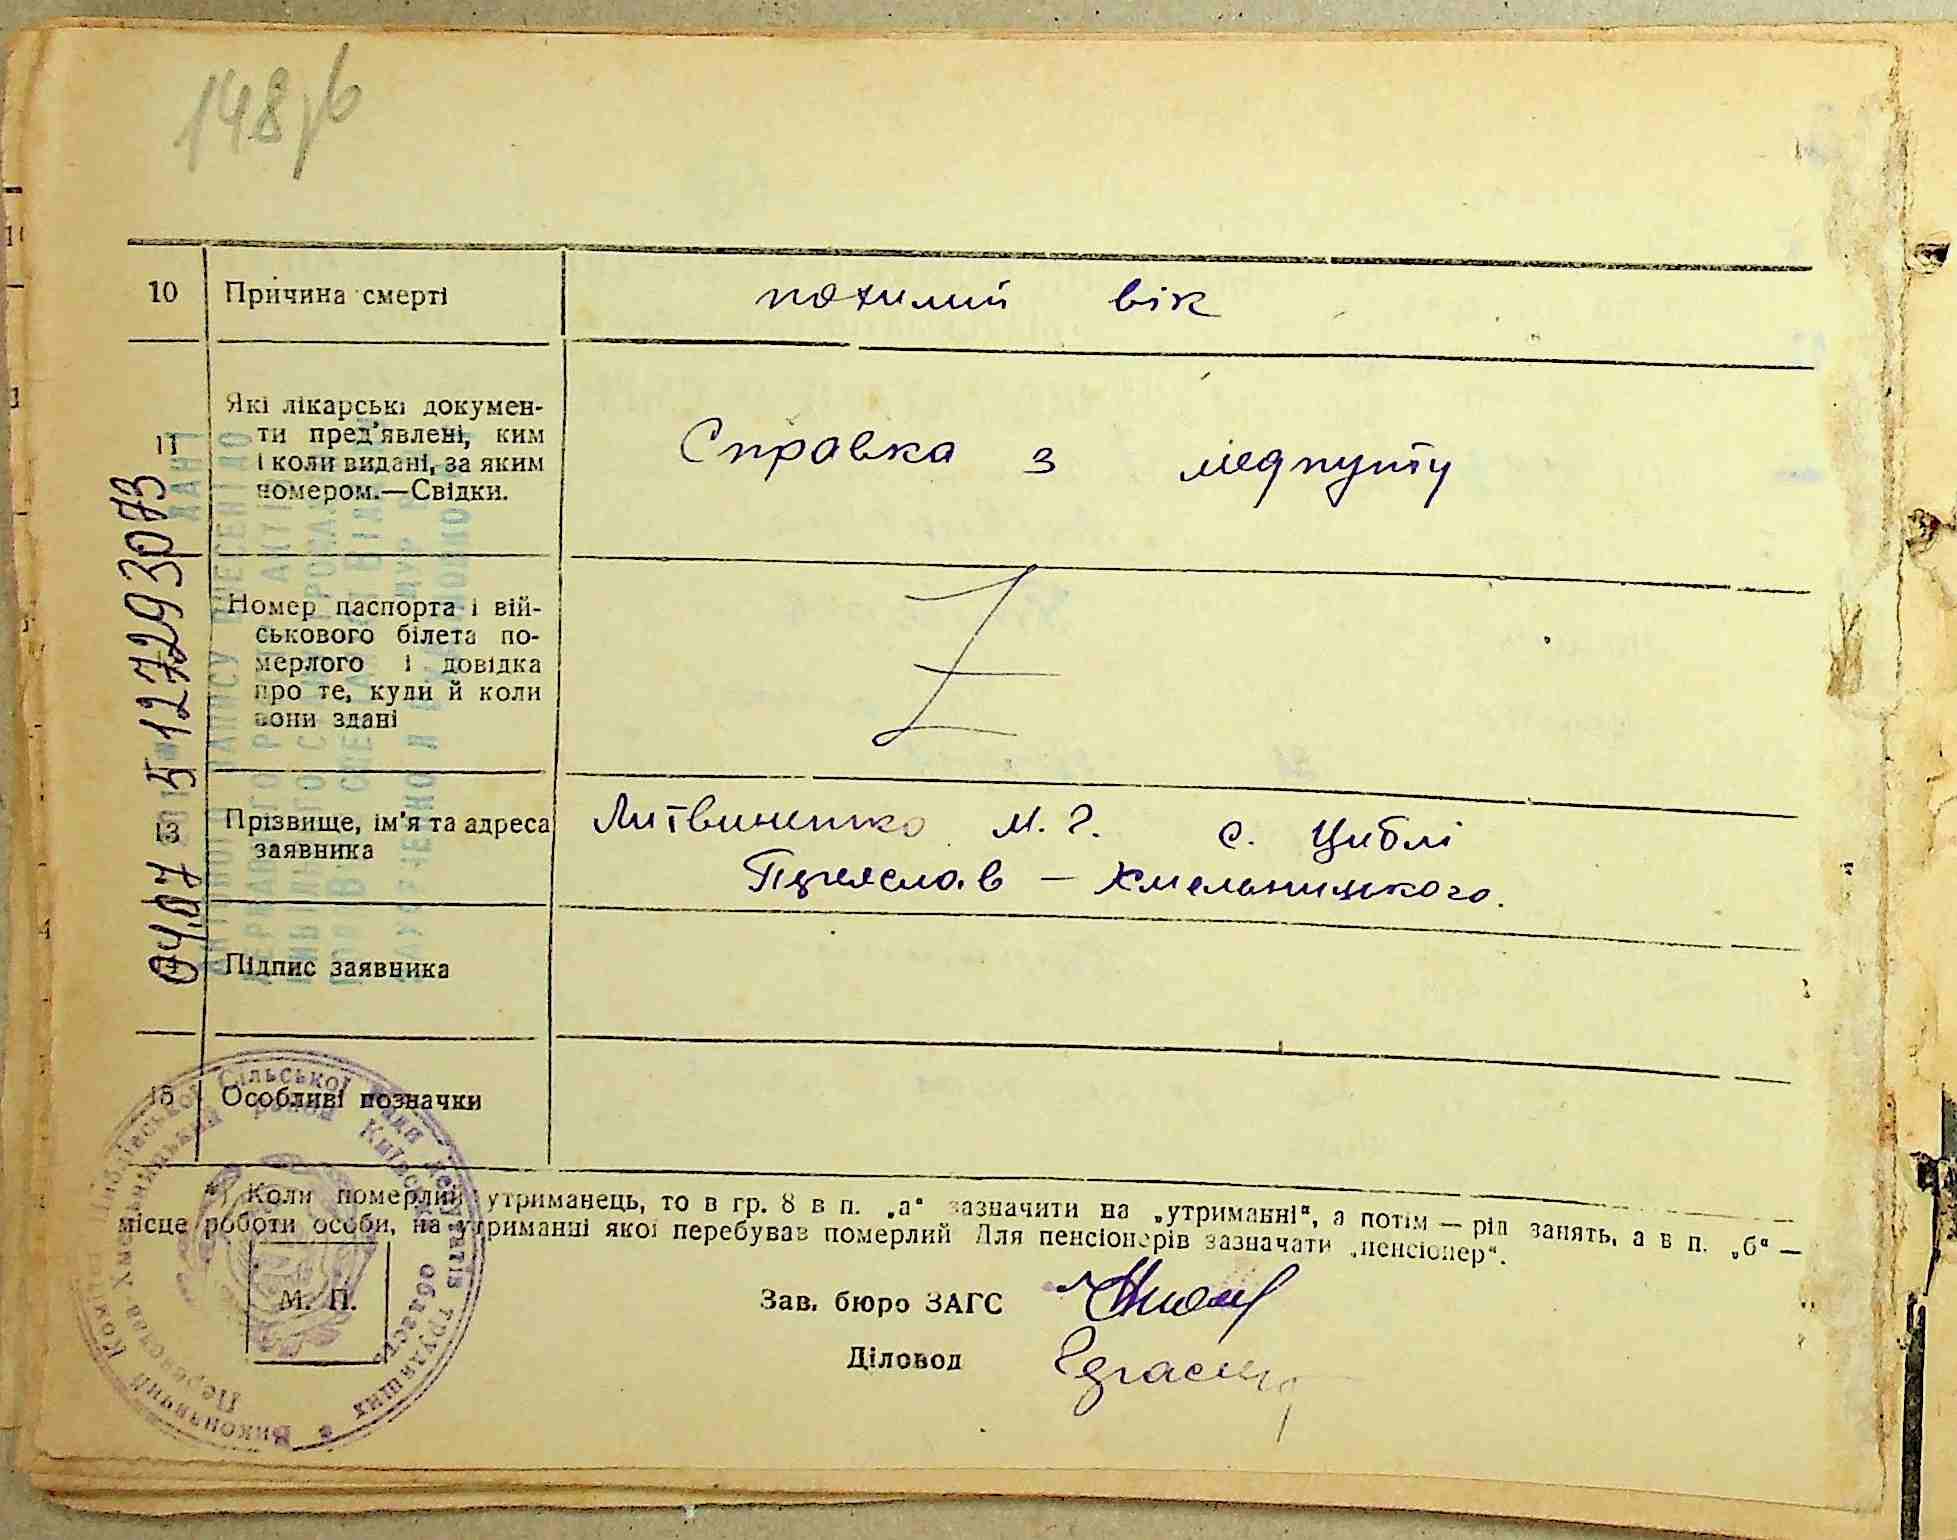 148
10 Причина смерті похилий вік
11 Які лікарські докумен-
ти пред'явлені, ким
і коли видані, за яким
номером.—Свідки.
Справка з медпункту
Номер паспорта і вій-
ськового білета по-
мерлого і довідка
про те, куди й коли
вони здані
13 Прізвище, ім'я та адреса
заявника
Литвиненко М. Г. с. Циблі
Переяслав — Хмельницького.
Підпис заявника
15 Особливі позначки
*) Коли померлий утриманець, то в гр. 8 в п. „а" зазначити на „утриманні", а потім — рід занять, а в п. „б" —
місце роботи особи, на утриманні якої перебував померлий Для пенсіонерів зазначати „пенсіонер".
М. П.
Зав. бюро ЗАГС
Діловод
04.07 5 12729307З
Виконавчий Комітет Циблівської Сільської Ради депутатів трудящих
Переяслав Хмельницький район Київська область